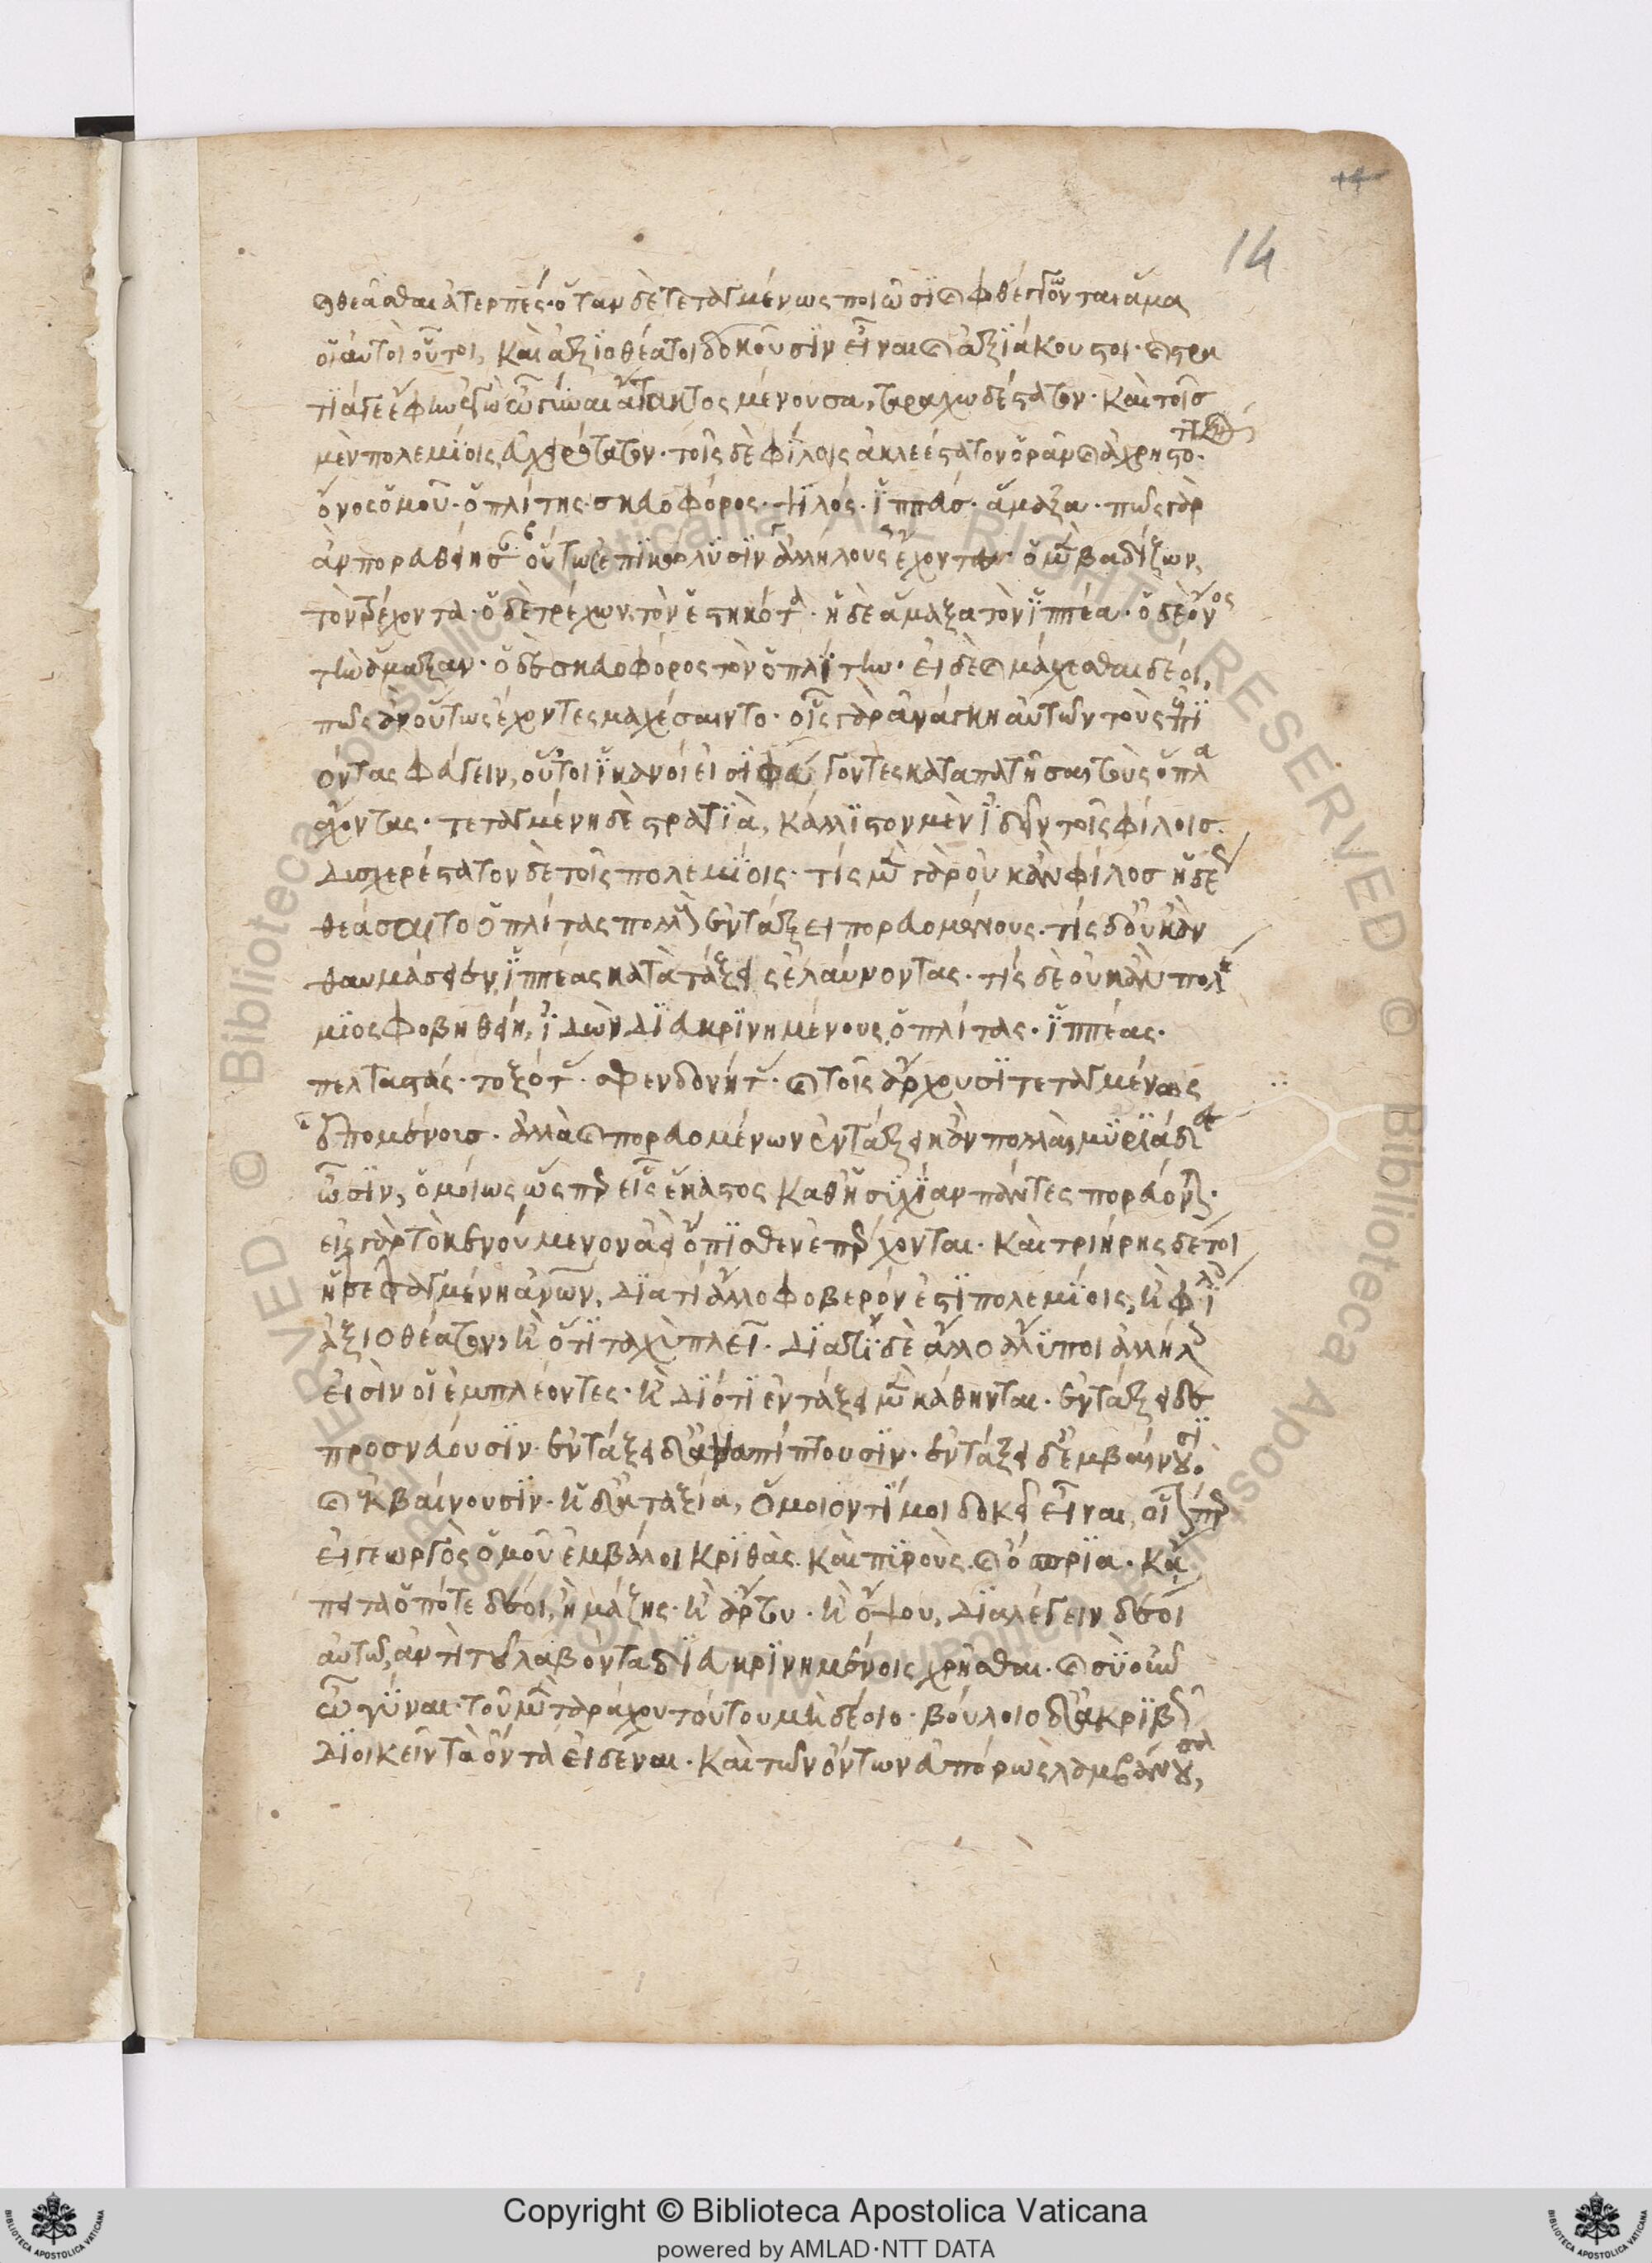 14
14
καὶ θεᾶσθαι ἀτερπές· ὅταν δὲ τεταγμένως ποιῶσι καὶ φθέγγωνται ἅμα
οἱ αὐτοὶ οὗτοι, καὶ ἀξιοθέατοι δοκοῦσιν εἶναι καὶ ἀξιάκουστοι· καὶ στρα
τιά γε ἔφην ἐγὼ ὦ γύναι ἄτακτος μὲν οὖσα, ταραχωδέστατον· καὶ τοῖς
μὲν πολεμίοις
τοῖς δὲ φίλοις ἀκλεέστατον ὁρᾶν καὶ ἀχρηστο·
ὄνος ὁμοῦ· ὁπλίτης· σκευοφόρος· ψιλός· ἱππεύς· ἅμαξα· πῶς γὰρ
ἂν πορευθείησαν οὕτως ἐπικωλύσιν ἀλλήλους ἔχοντες· ὁ μὲν βαδίζων,
τὸν τρέχοντα· ὁ δὲ τρέχων, τὸν ἑστηκότα· ἡ δὲ ἅμαξα τὸν ἱππέα· ὁ δὲ ὄνος
τὴν ἅμαξαν· ὁ δὲ σκευοφόρος τὸν ὁπλίτην· εἰ δὲ καὶ μάχεσθαι δέοι,
πῶς ἂν οὕτως ἔχοντες μαχέσαιντο· οἷς γὰρ ἀνάγκη αὐτῶν τοὺς ἐπι
όντας φυγεῖν, οὗτοι ἱκανοί εἰσι φεύγοντες καταπατῆσαι τοὺς ὅπλα
ἔχοντας· τεταγμένη δὲ στρατιὰ, κάλλιστον μὲν ἰδεῖν τοῖς φίλοις.
δυσχερέστατον δὲ τοῖς πολεμίοις· τίς μὲν γὰρ οὐκ ἂν φίλος ἡδέως
θεάσαιτο ὁπλίτας πολλοὺς ἐν τάξει πορευομένους· τίς δ' οὐκ ἂν
θαυμάσειεν, ἱππέας κατὰ τάξεις ἐλαύνοντας· τίς δὲ οὐκ ἂν πολέ
μιος φοβηθείη, ἰδὼν διακρινημένους ὁπλίτας· ἱππέας·
πελταστάς· τοξότας· σφενδονήτας· καὶ τοῖς ἄρχουσι τεταγμένως
ἑπομένους· ἀλλὰ καὶ πορευομένων ἐν τάξει κἂν πολλαὶ μυριάδες
ὦσιν, ὁμοίως ὥσπερ εἷς ἕκαστος καθ' ἡσυχίαν πάντες πορεύονται·
εἰς γὰρ τὸ κενούμενον ἀεὶ ὄπισθεν ἐπέρχονται· καὶ τριήρης δέ τοι
ἡ σεσαγμένη ἀνθρώπων, διατί ἄλλο φοβερόν ἐστι πολεμίοις, ἢ φίλοις
ἀξιοθέατον, ἢ ὅτι ταχὺ πλεῖ· διατί δὲ ἄλλο ἄλυποι ἀλλήλοις
εἰσὶν οἱ ἐμπλέοντες· ἢ διότι ἐν τάξει μὲν κάθηνται· ἐν τάξει δὲ
προσνεύουσιν· ἐν τάξει δ' ἀναπίπτουσιν· ἐν τάξει δ' ἐμβαίνουσι
καὶ ἐκβαίνουσιν· ἡ δ' ἀταξία, ὅμοιόν τί μοι δοκεῖ εἶναι, οἷόνπερ
εἰ γεωργὸς ὁμοῦ ἐμβάλοι κριθὰς καὶ πυροὺς καὶ ὄσπρια· κἄ
πειτα ὁπότε δέοι, ἢ μάζης· ἢ ἄρτου· ἢ ὄψου, διαλέγειν δέοι
αὐτῷ, ἀντὶ τοῦ λαβόντα διακρινημένοις χρῆσθαι· καὶ σὺ οὖν
ὦ γύναι· τοῦ μὲν ταράχου τούτου μὴ δέοιο· βούλοιο δ' ἀκριβῶς
διοικεῖν τὰ ὄντα εἰδέναι· καὶ τῶν ὄντων εὐπόρως λαμβάνουσα,
Copyright © Biblioteca Apostolica Vaticana
powered by AMLAD·NTT DATA